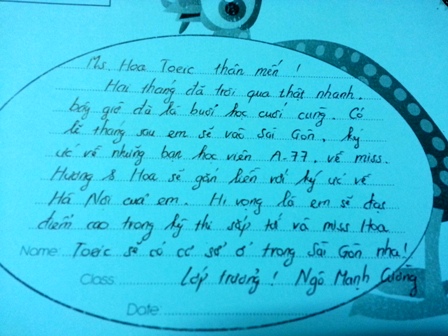 Ms. Hoa Toeic thân mến !
Hai tháng đã trôi qua thật nhanh.
bây giờ đã là buổi học cuối cùng. Có
lẽ tháng sau em sẽ vào Sài Gòn, ký
ức về những bạn học viên A-77, về miss.
Hương & Hoa sẽ gắn liền với ký ức về
Hà Nội của em. Hi vọng là em sẽ đạt
điểm cao trong kỳ thi sắp tới và miss Hoa
Name: Toeic sẽ có cơ sở ở trong Sài Gòn nha!
Class: Lớp trưởng ! Ngô Mạnh Cường
Date: